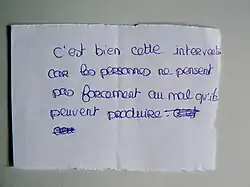 C'est bien cette interventi
car les personnes ne pensent
pas forcement au mal qu'ils
peuvent produire.